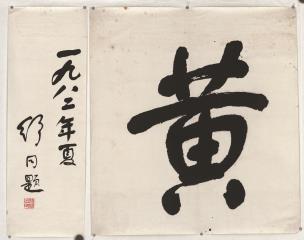 黄
一九八二年夏
舒同题